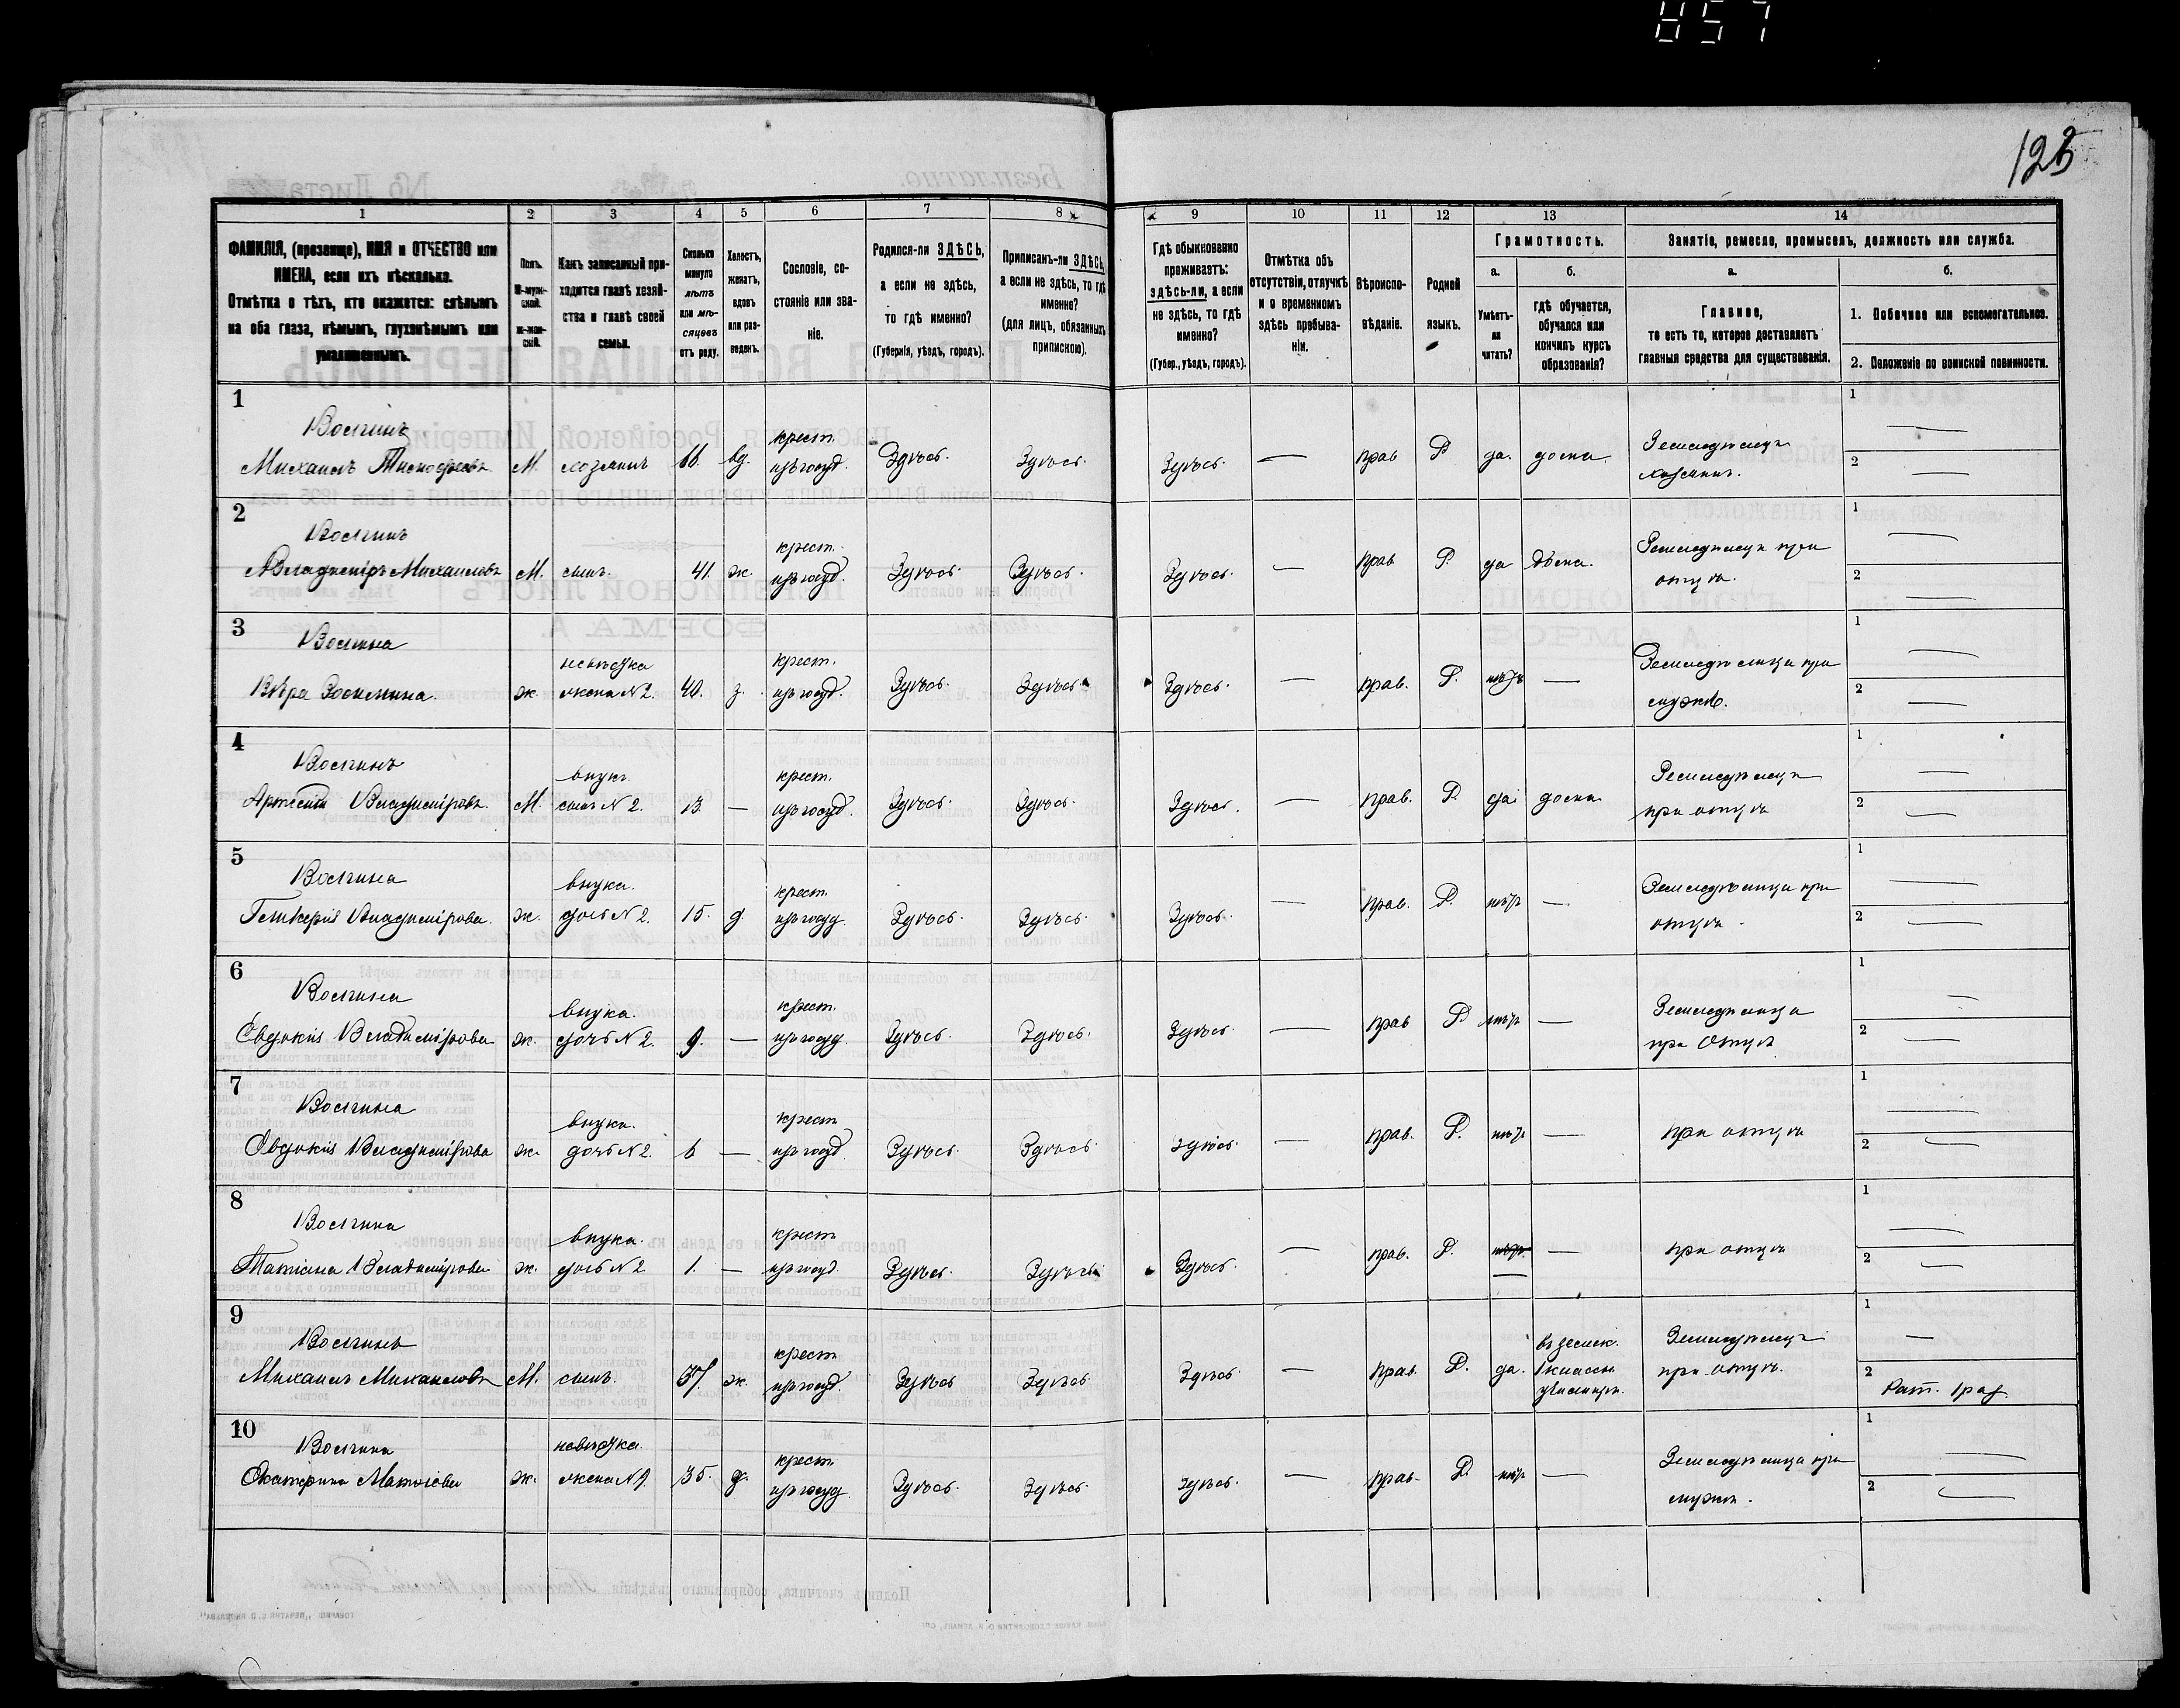 857
123
1 2 3 4 5 6 7 8 9 10 11 12 13 14
ФАМИЛІЯ, (прозвище), ИМЯ и ОТЧЕСТВО или
ИМЕНА, если ихъ нѣсколько.
Отмѣтка о тѣхъ, кто окажется: слѣпымъ
на оба глаза, нѣмымъ, глухонѣмымъ или
умалишеннымъ.
Полъ.
М-муж-
ской.
ж-жен-
скій.
Какъ записанный при-
ходится главѣ хозяй-
ства и главѣ своей
семьи.
Сколько
минуло
лѣтъ
или мѣ-
сяцевъ
отъ роду.
Холостъ,
женатъ,
вдовъ
или раз-
веденъ.
Сословіе, со-
стояніе или зва-
ніе.
Родился-ли ЗДѢСЬ,
а если не здѣсь,
то гдѣ именно?
(Губернія, уѣздъ, городъ).
Приписанъ-ли ЗДѢСЬ,
а если не здѣсь, то гдѣ
именно?
(для лицъ, обязанныхъ
припискою).
Гдѣ обыкновенно
проживаетъ:
здѣсь-ли, а если
не здѣсь, то гдѣ
именно?
(Губер., уѣздъ, городъ).
Отмѣтка объ
отсутствіи, отлучкѣ
и о временномъ
здѣсь пребыва-
ніи.
Вѣроиспо-
вѣданіе.
Родной
языкъ.
Грамотность.
а.
Умѣетъ-
ли
читать?
б.
гдѣ обучается,
обучался или
кончилъ курсъ
образованія?
Занятіе, ремесло, промыселъ, должность или служба.
а.
Главное,
то есть то, которое доставляетъ
главныя средства для существованія.
б.
1. Побочное или вспомогательное.
2. Положеніе по воинской повинности.
1
Волгинъ
Михаилъ Тимофеевъ М. хозяинъ 66. вд. крест. изъ госуд. Здѣсь. Здѣсь. Здѣсь. — прав Р да. дома. Земледѣлецъ хозяинъ.
1 —
2 —
2
Волгинъ
Владиміръ Михаиловъ М. сынъ. 41. ж. крест. изъ госуд. Здѣсь. Здѣсь. Здѣсь. — прав Р. да дома. Земледѣлецъ при отцѣ.
1 —
2 —
3
Волгина
Вѣра Зосимина. ж. невѣстка жена N2. 40. з. крест. изъ госуд. Здѣсь. Здѣсь. Здѣсь. — прав. Р. нѣтъ — Земледѣлица при мужѣ.
1 —
2 —
4
Волгинъ
Арсеній Владиміровъ. М. внукъ. сынъ N2. 13 — крест. изъ госуд. Здѣсь. Здѣсь. Здѣсь. — прав. Р. да дома Земледѣлецъ при отцѣ
1 —
2 —
5
Волгина
Гликерія Владимірова. ж. внука. дочь N2. 15. д. крест. изъ госуд. Здѣсь. Здѣсь. Здѣсь. — прав. Р. нѣтъ — Земледѣлица при отцѣ.
1 —
2 —
6
Волгина
Евдокія Владимірова ж. внука. дочь N2. 9. — крест. изъ госуд. Здѣсь. Здѣсь. Здѣсь. — прав Р нѣтъ — Земледѣлица при Отцѣ
1 —
2 —
7
Волгина
Евдокія Владимірова ж. внука. дочь N2. 6 — крест. изъ госуд. Здѣсь. Здѣсь. здѣсь. — прав. Р. нѣтъ — при отцѣ
1 —
2 —
8
Волгина
Татіана Владимірова ж. внука. дочь N2 1. — крест изъ госуд. Здѣсь. Здѣсь Здѣсь. — прав. Р. — при отцѣ
1 —
2 —
9
Волгинъ
Михаилъ Михаиловъ М. сынъ. 37. ж. крест изъ госуд. Здѣсь Здѣсь Здѣсь. — прав. Р. да. въ земск. 1 классн. училищѣ. Земледѣлецъ при отцѣ.
1 —
2 Рат. 1 раз.
10
Волгина
Екатерина Матвѣева ж. невѣстка. жена N9. 35. крест изъ госуд. Здѣсь. Здѣсь. Здѣсь. — прав. Р. нѣтъ — Земледѣлица при мужѣ.
1 —
2 —